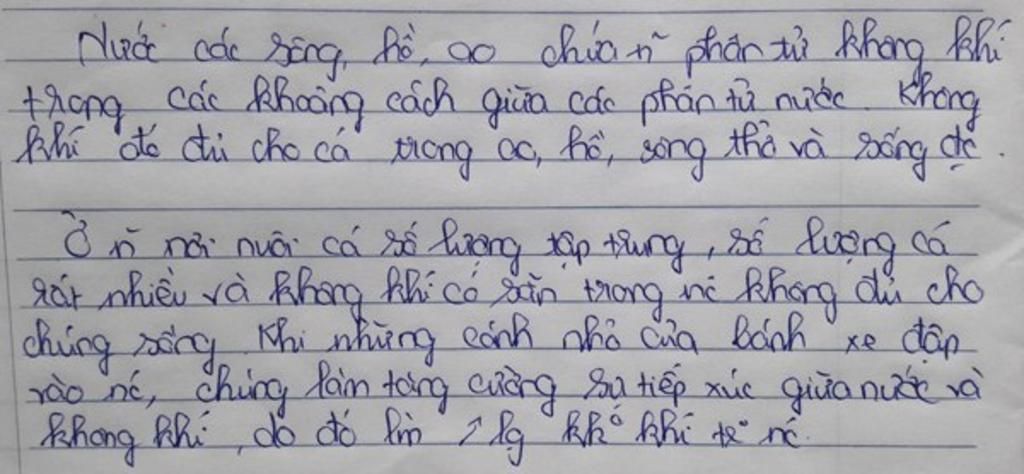 Nước các sông, hồ, ao chứa n~ phân tử không khí
trong các khoảng cách giữa các phân tử nước. Không
khí đó đủ cho cá trong ao, hồ, sông thở và sống đc.
Ở n~ nơi nuôi cá số lượng tập trung, số lượng cá
rất nhiều và không khí có sẵn trong nc không đủ cho
chúng sống. Khi những cánh nhỏ của bánh xe đập
vào nc, chúng làm tăng cường sự tiếp xúc giữa nước và
không khí, do đó làm ↗ lg khí nc.